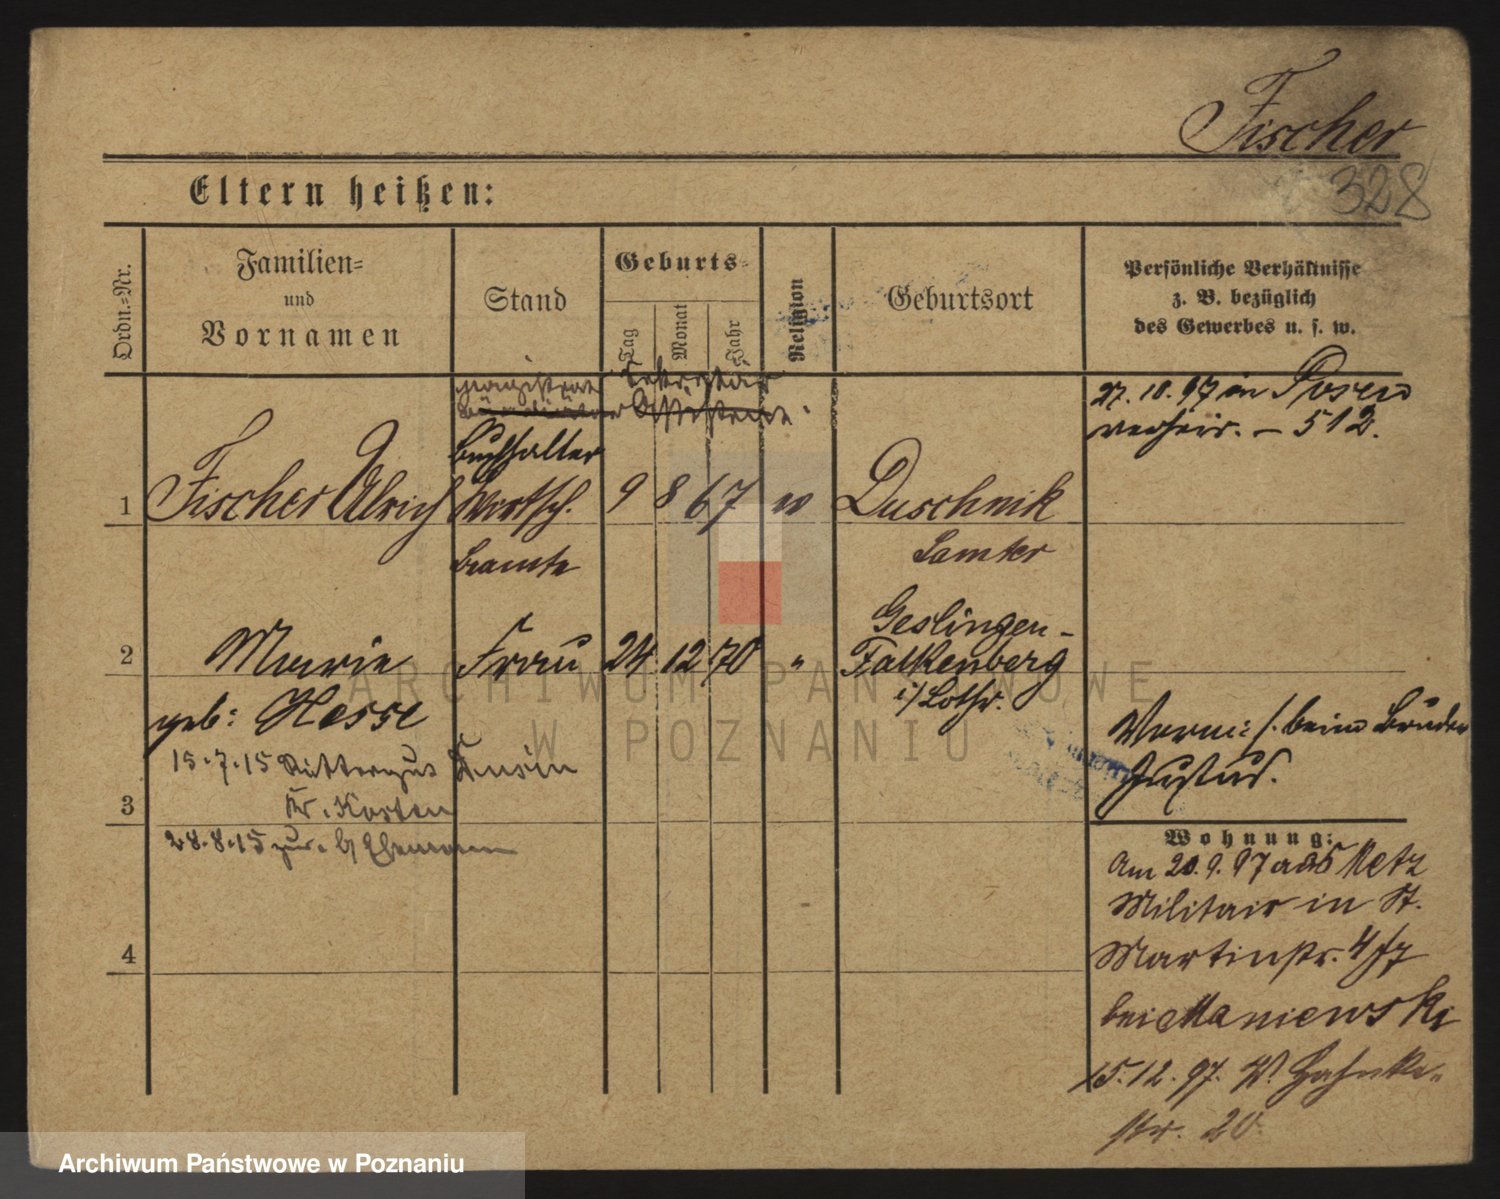 Fischer
328
Eltern heißen:
Ordn.-Nr.
Familien-
und
Vornamen
Stand
Geburts-
Tag
Monat
Jahr
Religion
Geburtsort
Persönliche Verhältnisse
z. B. bezüglich
des Gewerbes u. s. w.
Magistrats Sekretär
Assistent
Buchhalter
1 Fischer Ulrich Wirtsch. 9 8 67 Duschnik
beamte
Samter
27.10.97 in Posen
verheir. – 512.
2 Marie Frau 24 12 70 " Geslingen-
Falkenberg
i/Lothr.
geb: Hesse
15.7.15 Rittergut
Kr. Kosten
3
28.8.15 zur. Ehemann
4
beim Bruder
Justus.
Wohnung:
Am 20.9.97 aus Metz
Militair in St.
Martinstr. 4/
bei Maniewski
15.12.97. W.
str. 20
ARCHIWUM PAŃSTWOWE
W POZNANIU
Archiwum Państwowe w Poznaniu